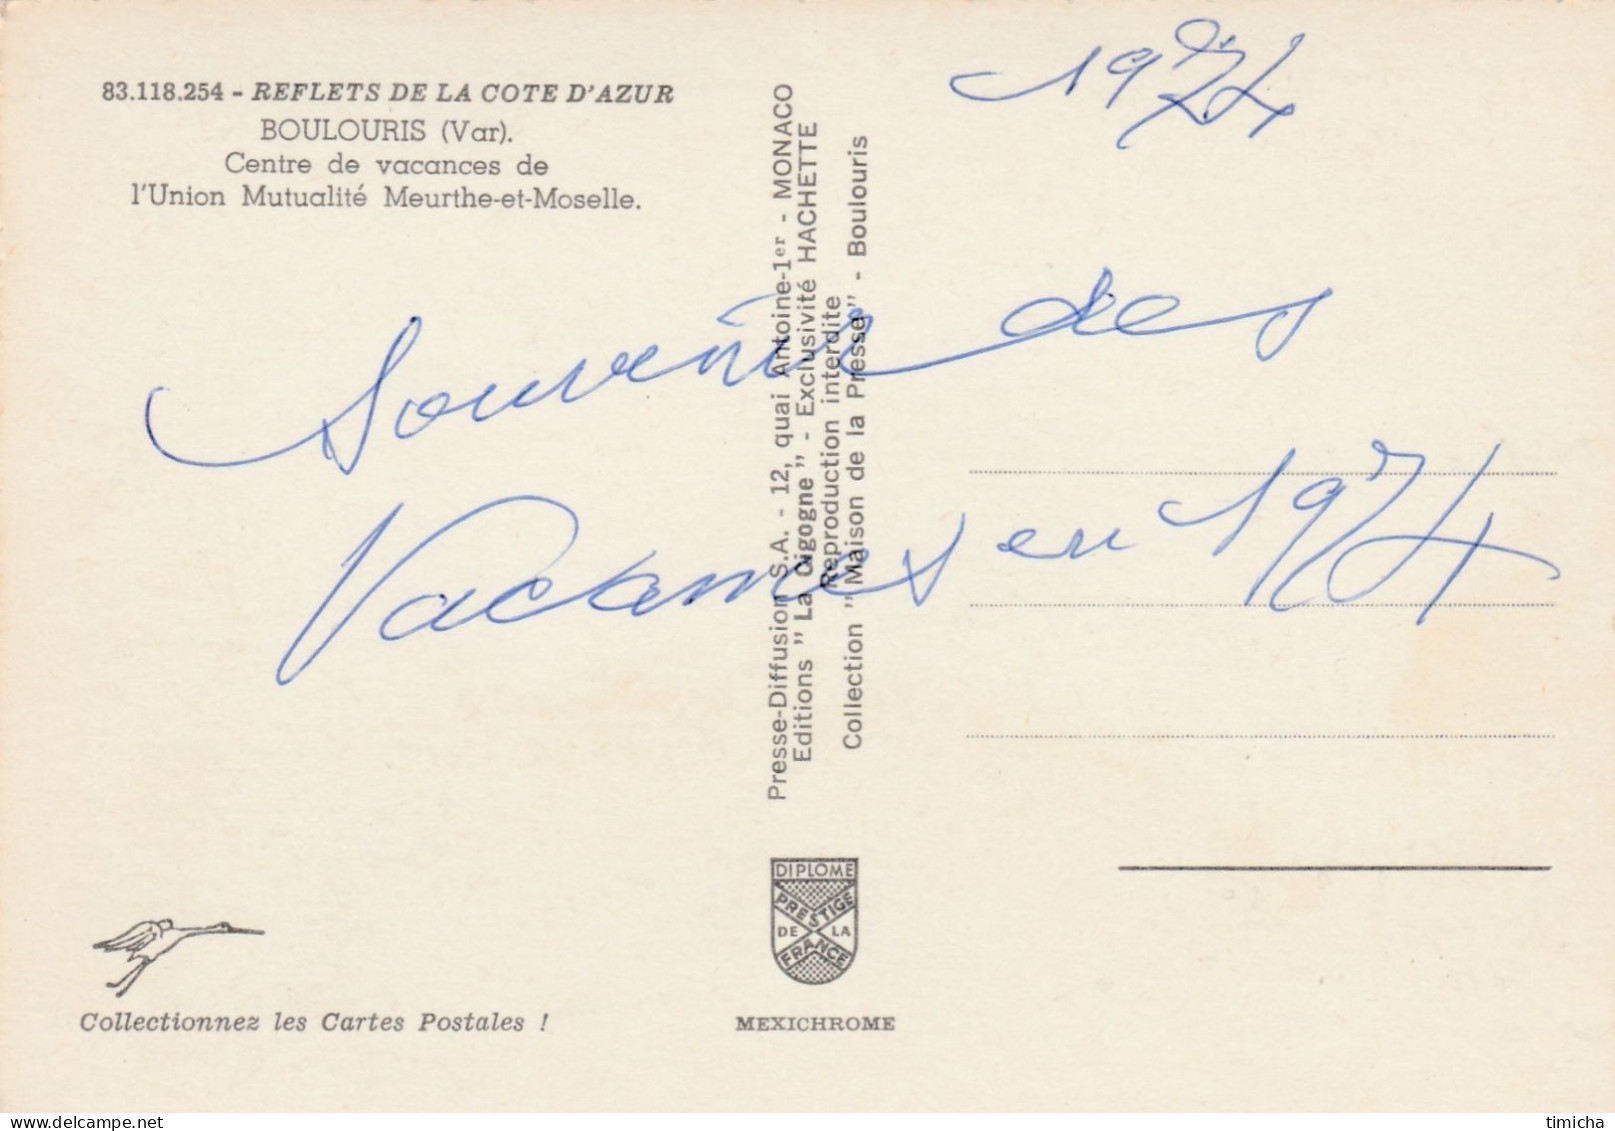 83.118.254 - REFLETS DE LA COTE D'AZUR
BOULOURIS (Var).
Centre de vacances de
l'Union Mutualité Meurthe-et-Moselle.
1974
Souvenir des
Vacances en 1974
Presse-Diffusion S.A. - 12, quai Antoine-1er - MONACO
Editions "La Cigogne" - Exclusivité HACHETTE
Reproduction interdite
Collection "Maison de la Presse" - Boulouris
DIPLOME
PRESTIGE
DE LA
FRANCE
MEXICHROME
Collectionnez les Cartes Postales !
timicha